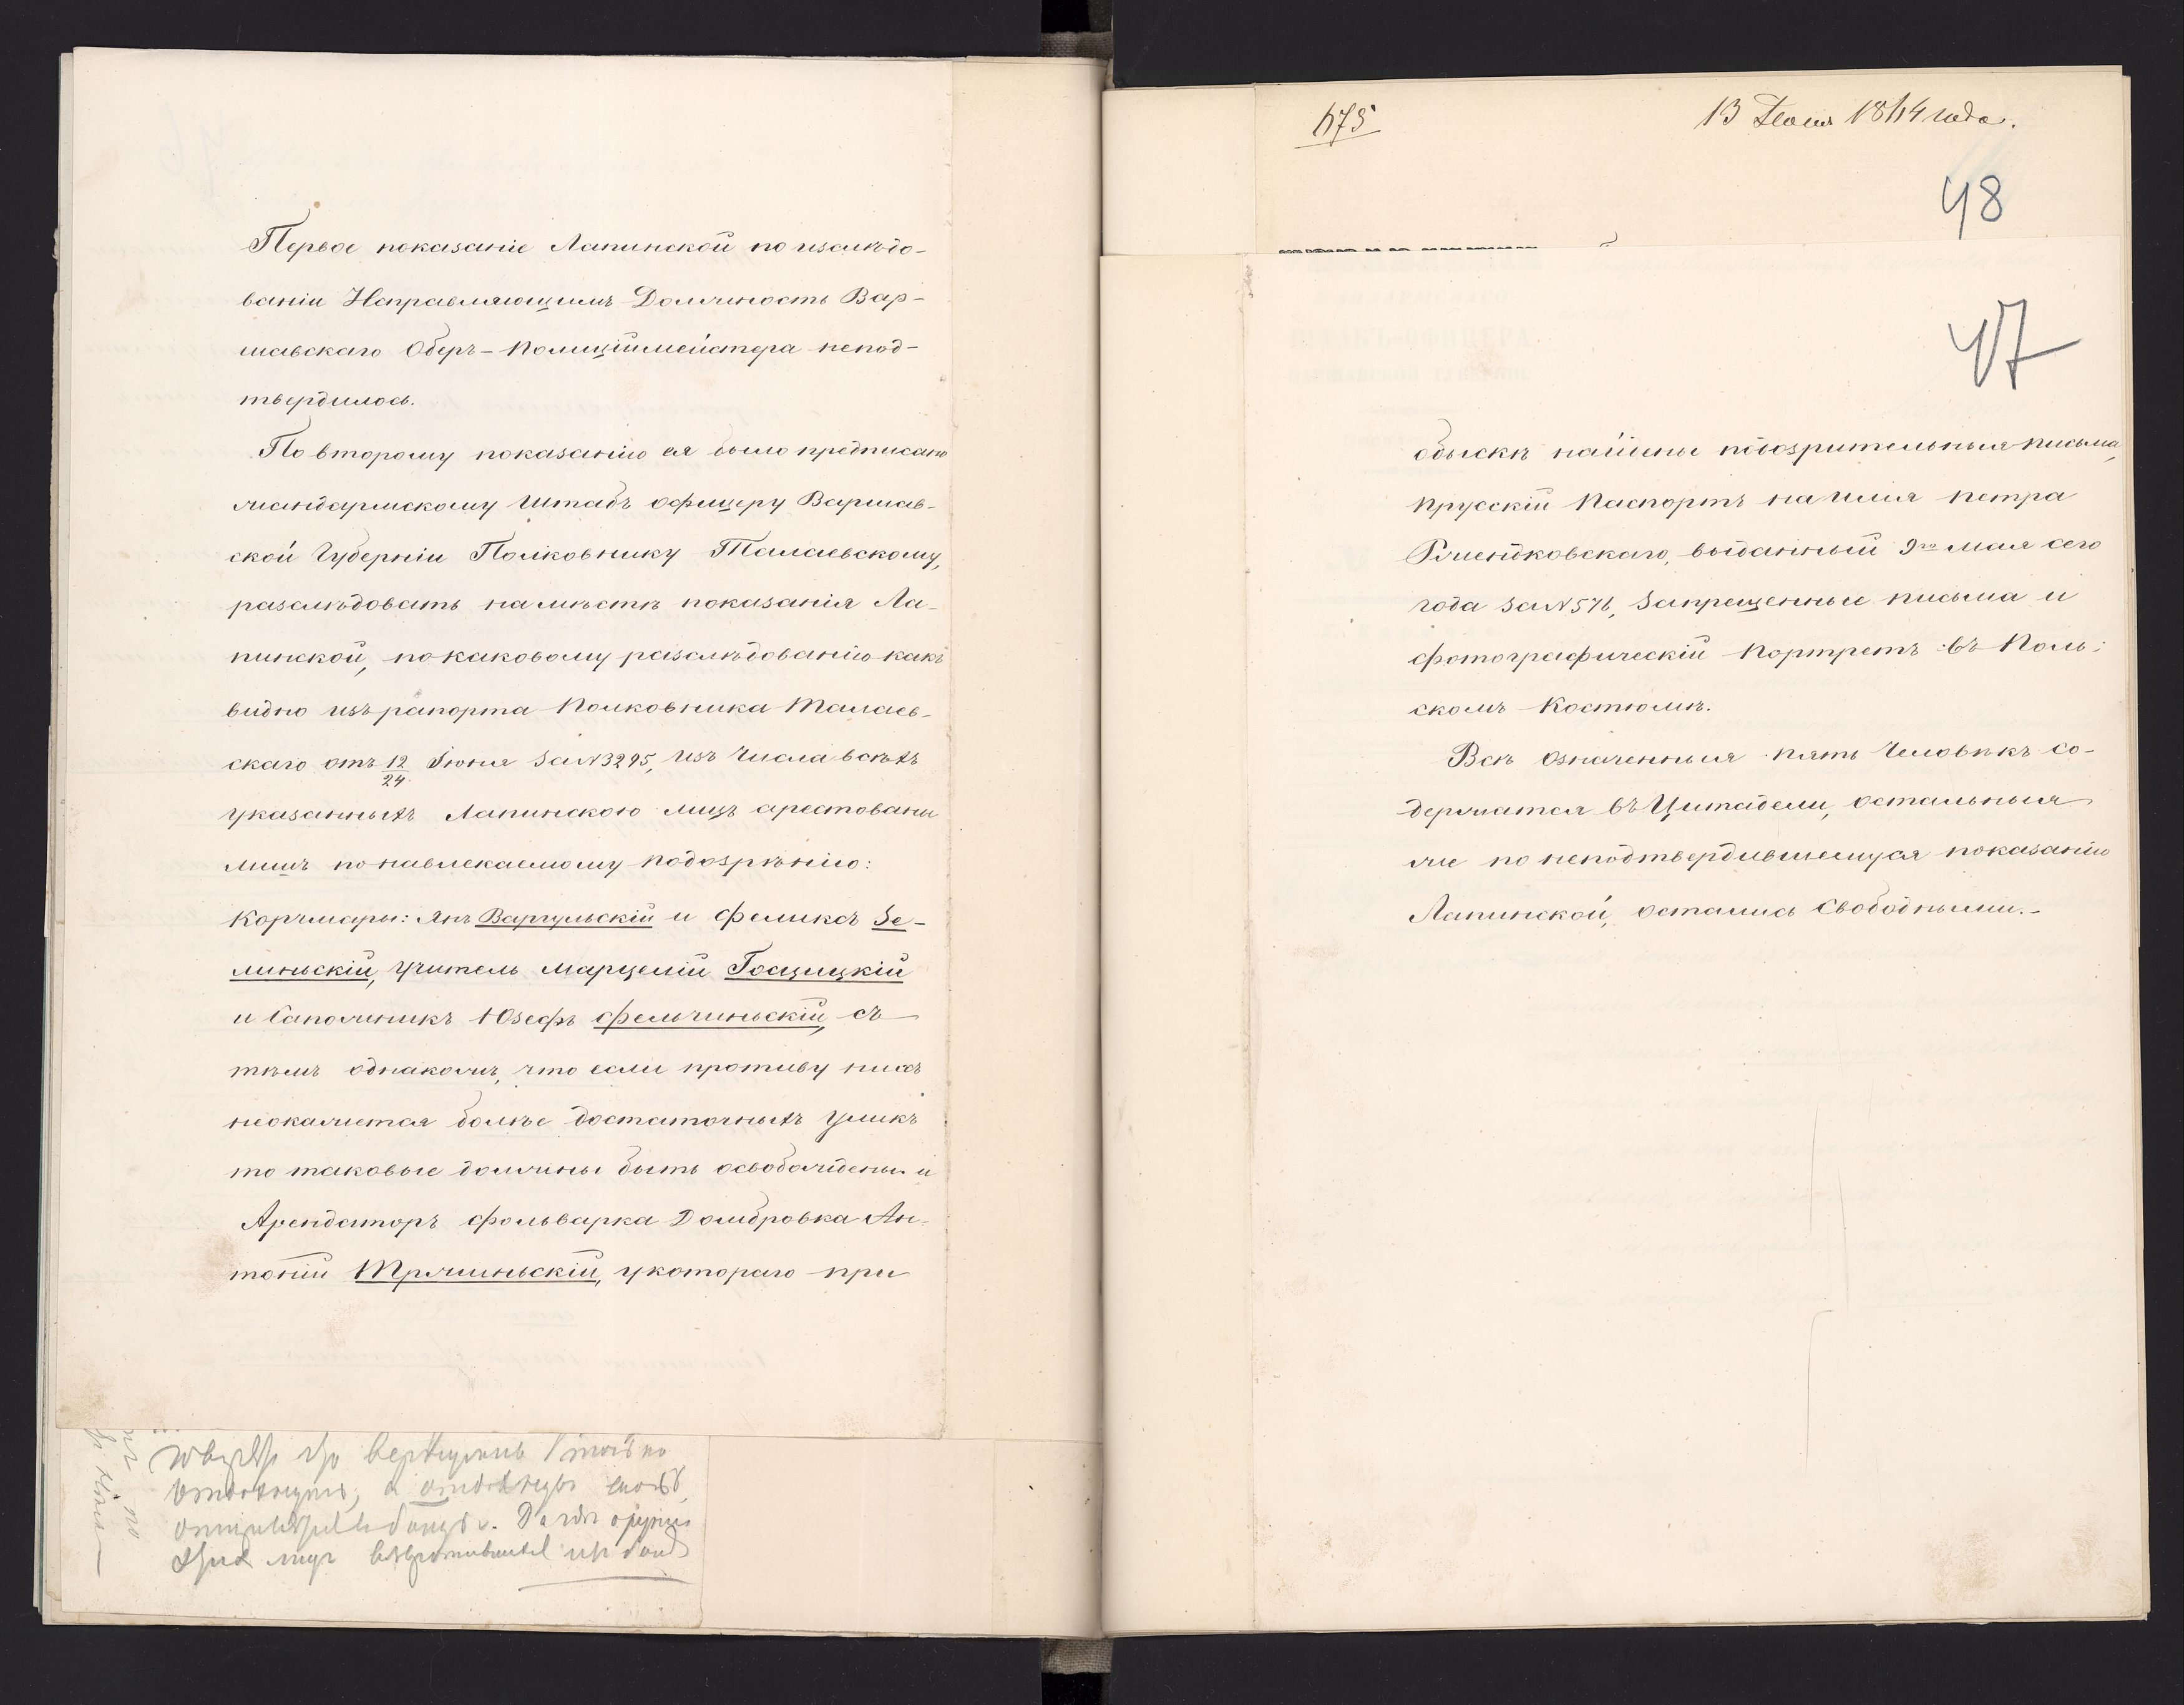 Первое показаніе Лапинской по изслѣдо-
ваніи Исправляющимъ Должность Вар-
шавскаго Оберъ-Полиціймейстера непод-
твердилось.
По второму показанію ея было предписано
жандармскому Штабъ офицеру Варшав-
ской Губерніи Полковнику Талаевскому,
разслѣдовать на мѣстѣ показанія Ла-
пинской, по каковому разслѣдованію какъ
видно изъ рапорта Полковника Талаев-
скаго отъ 12/24 Іюня за N 3295, изъ числа всѣхъ
указанныхъ Лапинскою лицъ арестованы
лишь по навлекаемому подозрѣнію:
Корчмары: Янъ Варгульскій и Феликсъ Зе-
линьскій, учитель Марцелій Гощицкій
и Сапожникъ Юзефъ Фельчиньскій, съ
тѣмъ однакожъ, что если противу нихъ
неокажется болѣе достаточныхъ уликъ
то таковые должны быть освобождены и
Арендаторъ фольварка Домбровка Ан-
тоній Тржциньскій, у котораго при
675
13 Іюня 1864 года.
48
47
обыскѣ найдены подозрительныя письма,
Прусскій Паспортъ на имя Петра
выданный 9го мая сего
года за N 576, Запрещенные письма и
фотографическій Портретъ въ Поль-
скомъ Костюмѣ.
Всѣ означенныя пять Человѣкъ со-
держатся въ Цитадели, остальныя
же по неподтвердившемуся показанію
Лапинской, остались Свободными.-